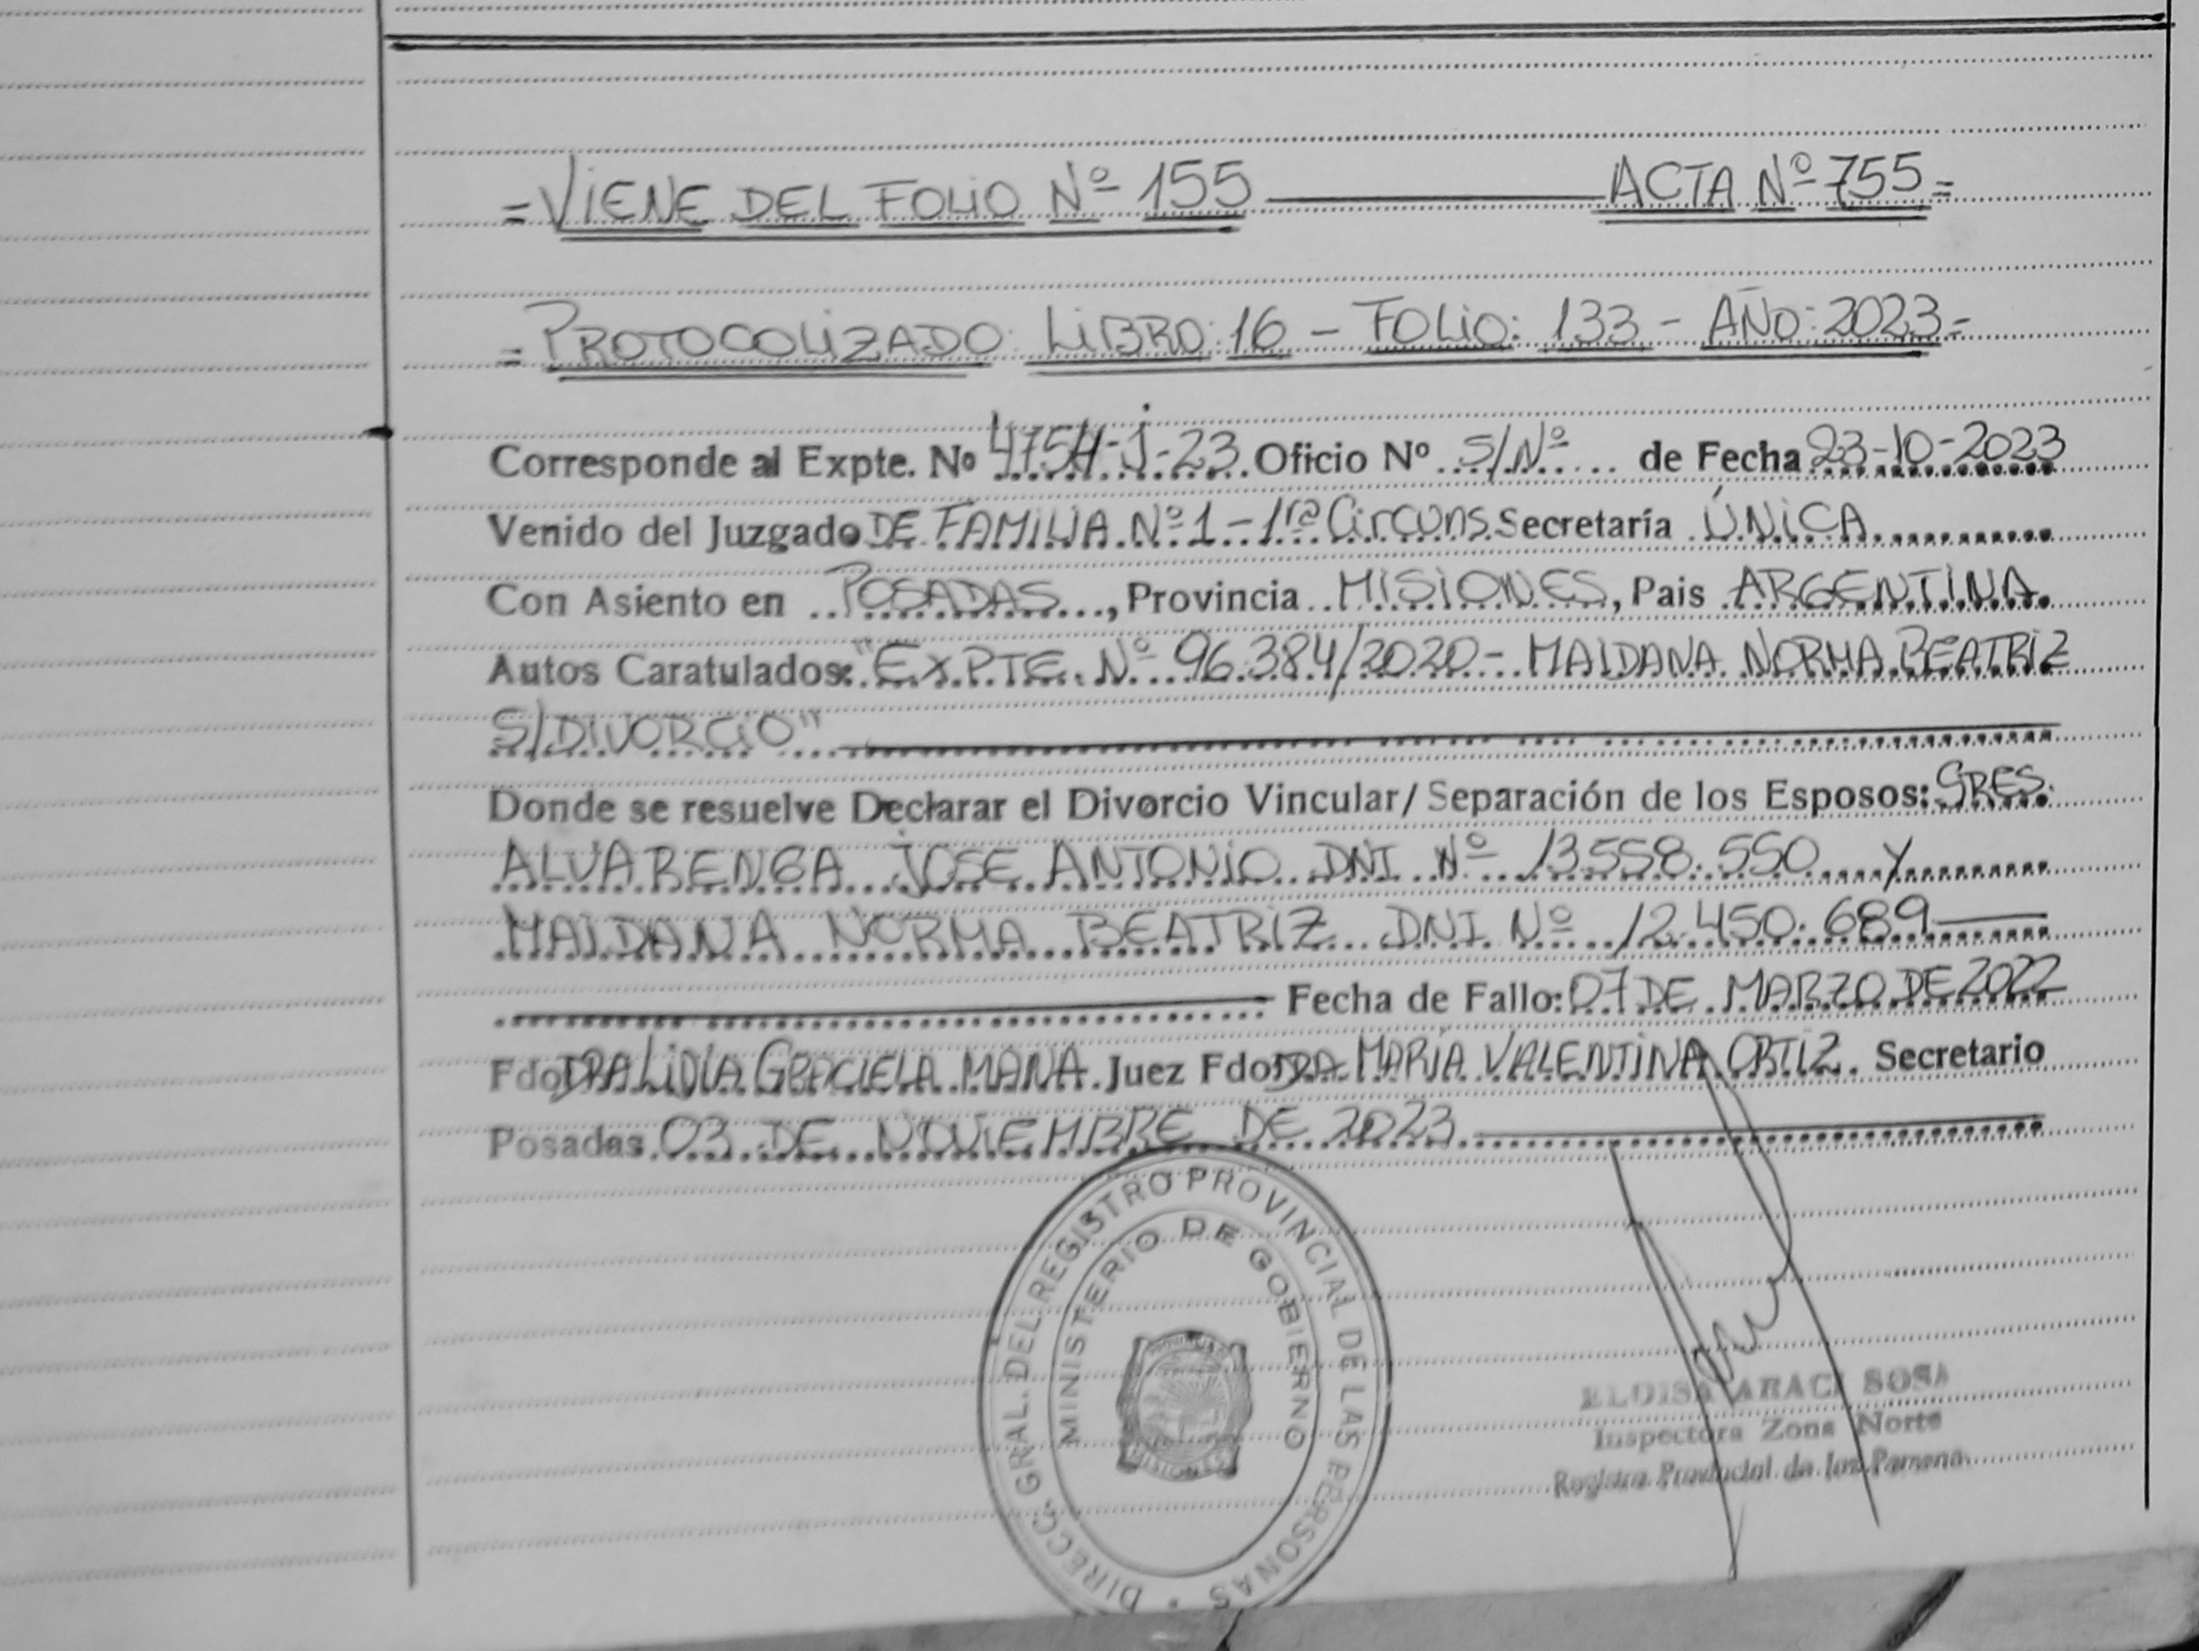 =VIENE DEL FOLIO Nº 155 ACTA Nº 755=
=PROTOCOLIZADO: LIBRO: 16 - FOLIO: 133 - AÑO: 2023=
Corresponde al Expte. Nº 4754-J-23 Oficio Nº S/Nº de Fecha 23-10-2023
Venido del Juzgado DE FAMILIA Nº 1 - 1ra Circuns. Secretaría ÚNICA
Con Asiento en POSADAS, Provincia MISIONES, Pais ARGENTINA.
Autos Caratulados: "EXPTE. Nº 96.384/2020 - MAIDANA NORMA BEATRIZ
S/DIVORCIO"
Donde se resuelve Declarar el Divorcio Vincular/Separación de los Esposos: SRES.
ALVARENGA JOSE ANTONIO DNI Nº 13.558.550 Y
MAIDANA NORMA BEATRIZ DNI Nº 12.450.689
Fecha de Fallo: 07 DE MARZO DE 2022
Fdo DRA LIDIA GRACIELA MANA. Juez Fdo DRA MARÍA VALENTINA ORTIZ. Secretario
Posadas 03 DE NOVIEMBRE DE 2023
DIRECC. GRAL. DEL REGISTRO PROVINCIAL DE LAS PERSONAS
MINISTERIO DE GOBIERNO
MISIONES
ELOISA ARACI SOSA
Inspectora Zona Norte
Registro Provincial de las Person.